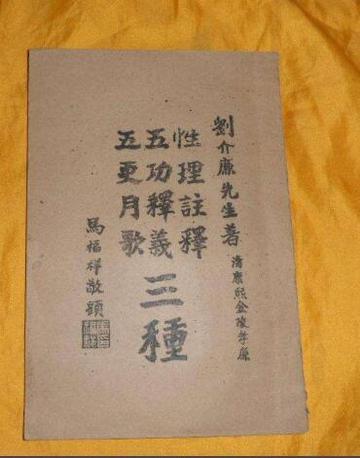 劉介廉先生著
清康熙金陵孝廉
性理註釋
五功釋義
五更月歌
三種
馬福祥敬題